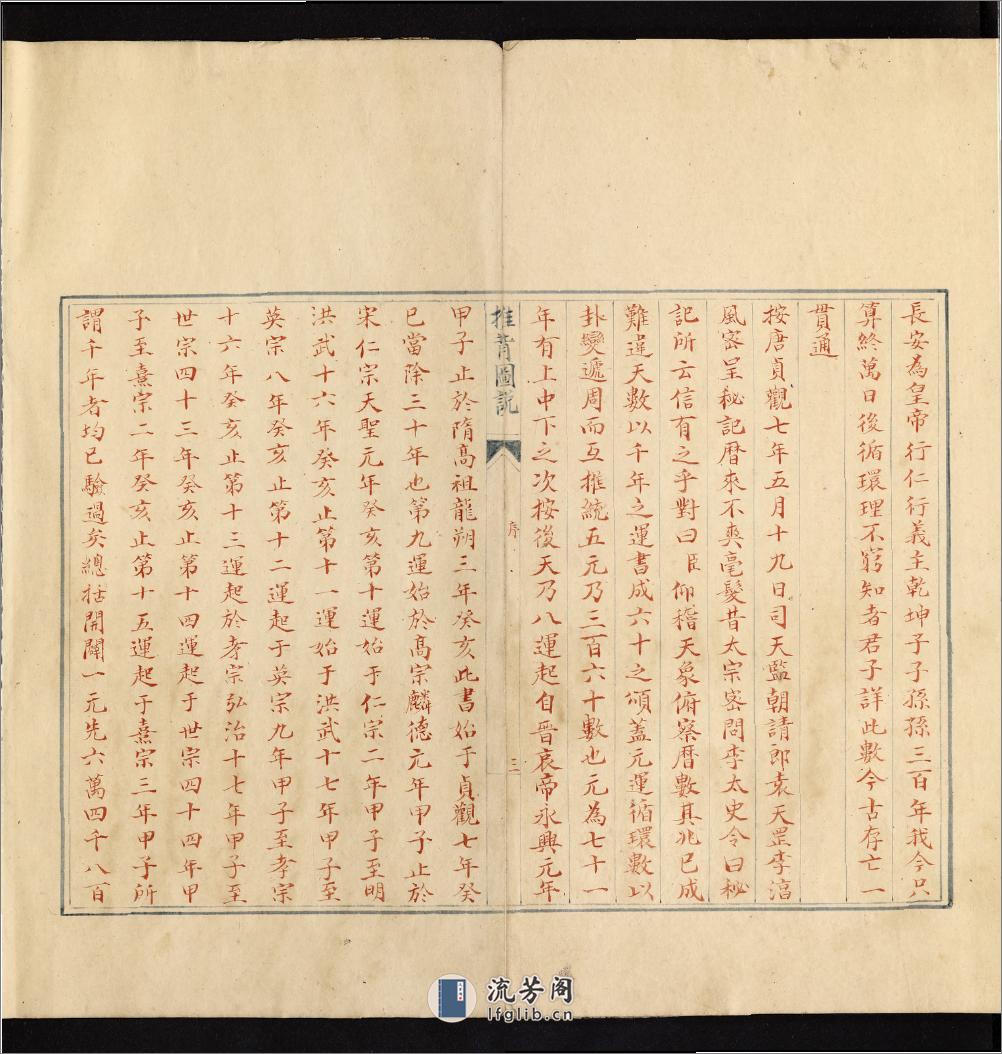 長安為皇帝行仁行義主乾坤子子孫孫三百年我今只
算終萬日後循環理不窮知者君子詳此數今古存亡一
貫通
按唐貞觀七年五月十九日司天監朝請郎袁天罡李淳
風密呈秘記曆來不爽毫髮昔太宗密問李太史令曰秘
記所云信有之乎對曰臣仰稽天象俯察曆數其兆已成
難違天數以千年之運書成六十之頌蓋元運循環數以
卦變遞周而互推統五元乃三百六十數也元為七十一
年有上中下之次按後天乃八運起自晉哀帝永興元年
推背圖說
序
三
甲子止於隋高祖龍朔三年癸亥此書始于貞觀七年癸
巳當除三十年也第九運始於高宗麟德元年甲子止於
宋仁宗天聖元年癸亥第十運始于仁宗二年甲子至明
洪武十六年癸亥止第十一運始于洪武十七年甲子至
英宗八年癸亥止第十二運起于英宗九年甲子至孝宗
十六年癸亥止第十三運起於孝宗弘治十七年甲子至
世宗四十三年癸亥止第十四運起于世宗四十四年甲
子至熹宗二年癸亥止第十五運起于熹宗三年甲子所
謂千年者均已驗過矣總括開闢一元先六萬四千八百
流芳阁
lfglib.cn